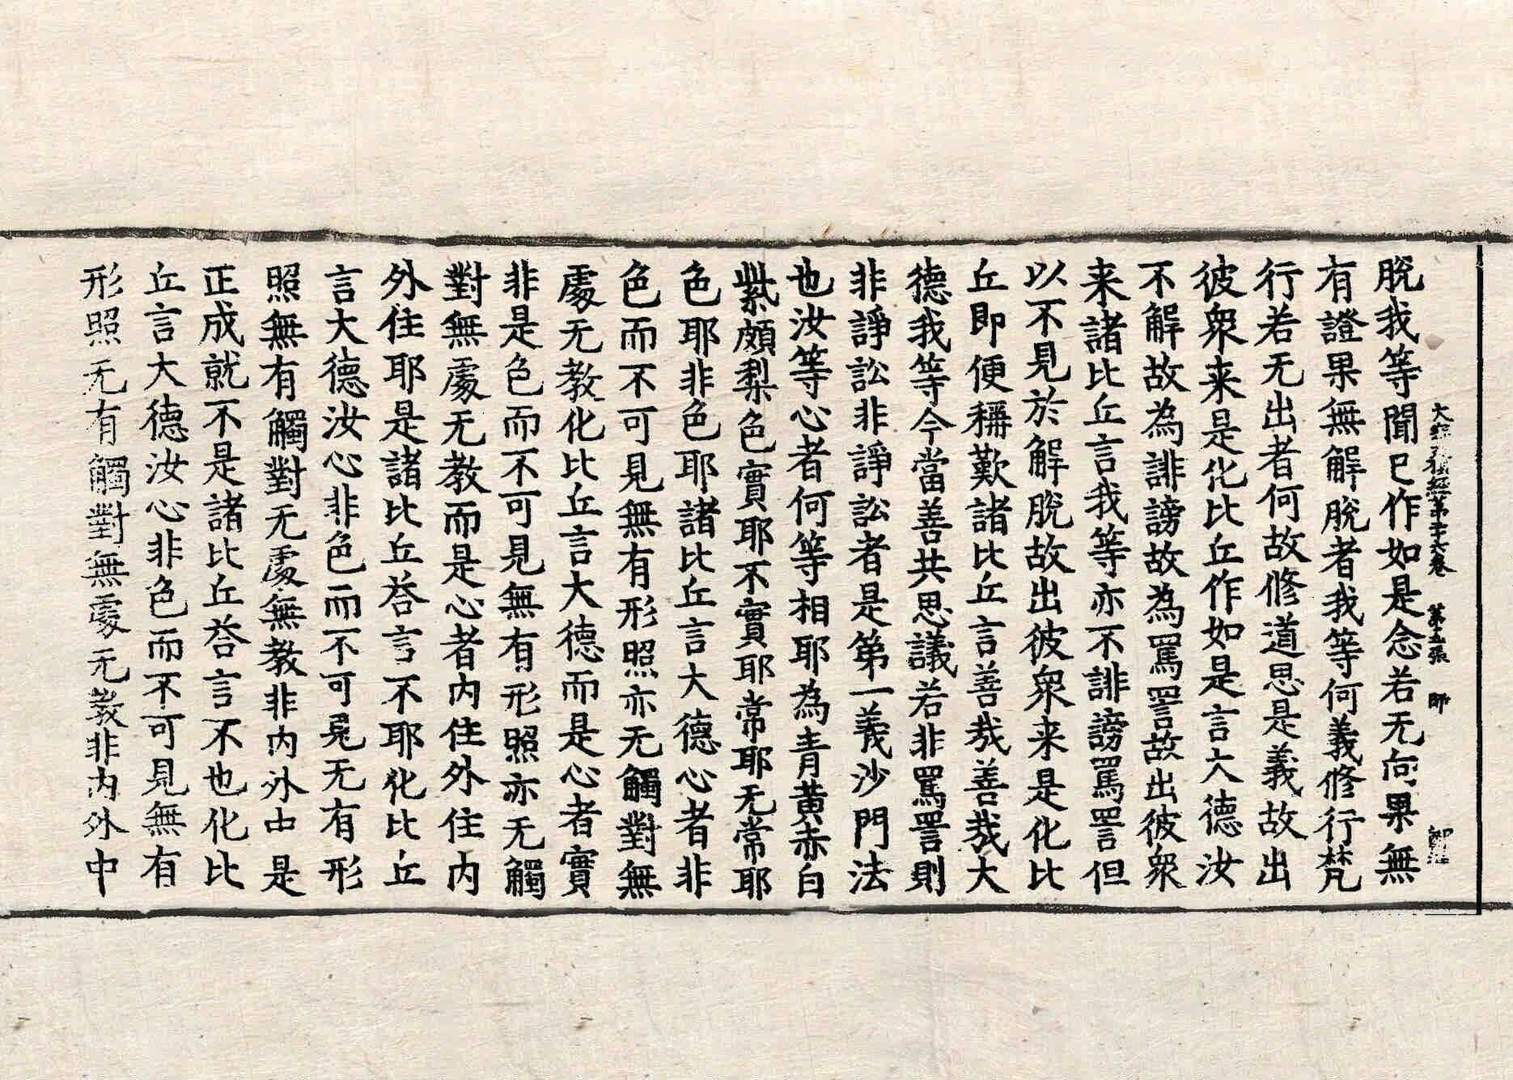 大積經第卷　第五張　師
脫我等聞已作如是念若无向果無
有證果無解脫者我等何義修行梵
行若无出者何故修道思是義故出
彼衆来是化比丘作如是言大德汝
不解故為誹謗故為罵詈故出彼衆
来諸比丘言我等亦不誹謗罵詈但
以不見於解脫故出彼衆来是化比
丘即便稱歎諸比丘言善㢤善㢤大
德我等今當善共思議若非罵詈則
非諍訟非諍訟者是第一義沙門法
也汝等心者何等相耶為青黄赤白
紫頗梨色實耶不實耶常耶无常耶
色耶非色耶諸比丘言大德心者非
色而不可見無有形照亦无觸對無
處无教化比丘言大德而是心者實
非是色而不可見無有形照亦无觸
對無處无教而是心者内住外住内
外住耶是諸比丘荅言不耶化比丘
言大德汝心非色而不可見无有形
照無有觸對无處無教非内外中是
正成就不是諸比丘荅言不也化比
丘言大德汝心非色而不可見無有
形照无有觸對無處无教非内外中